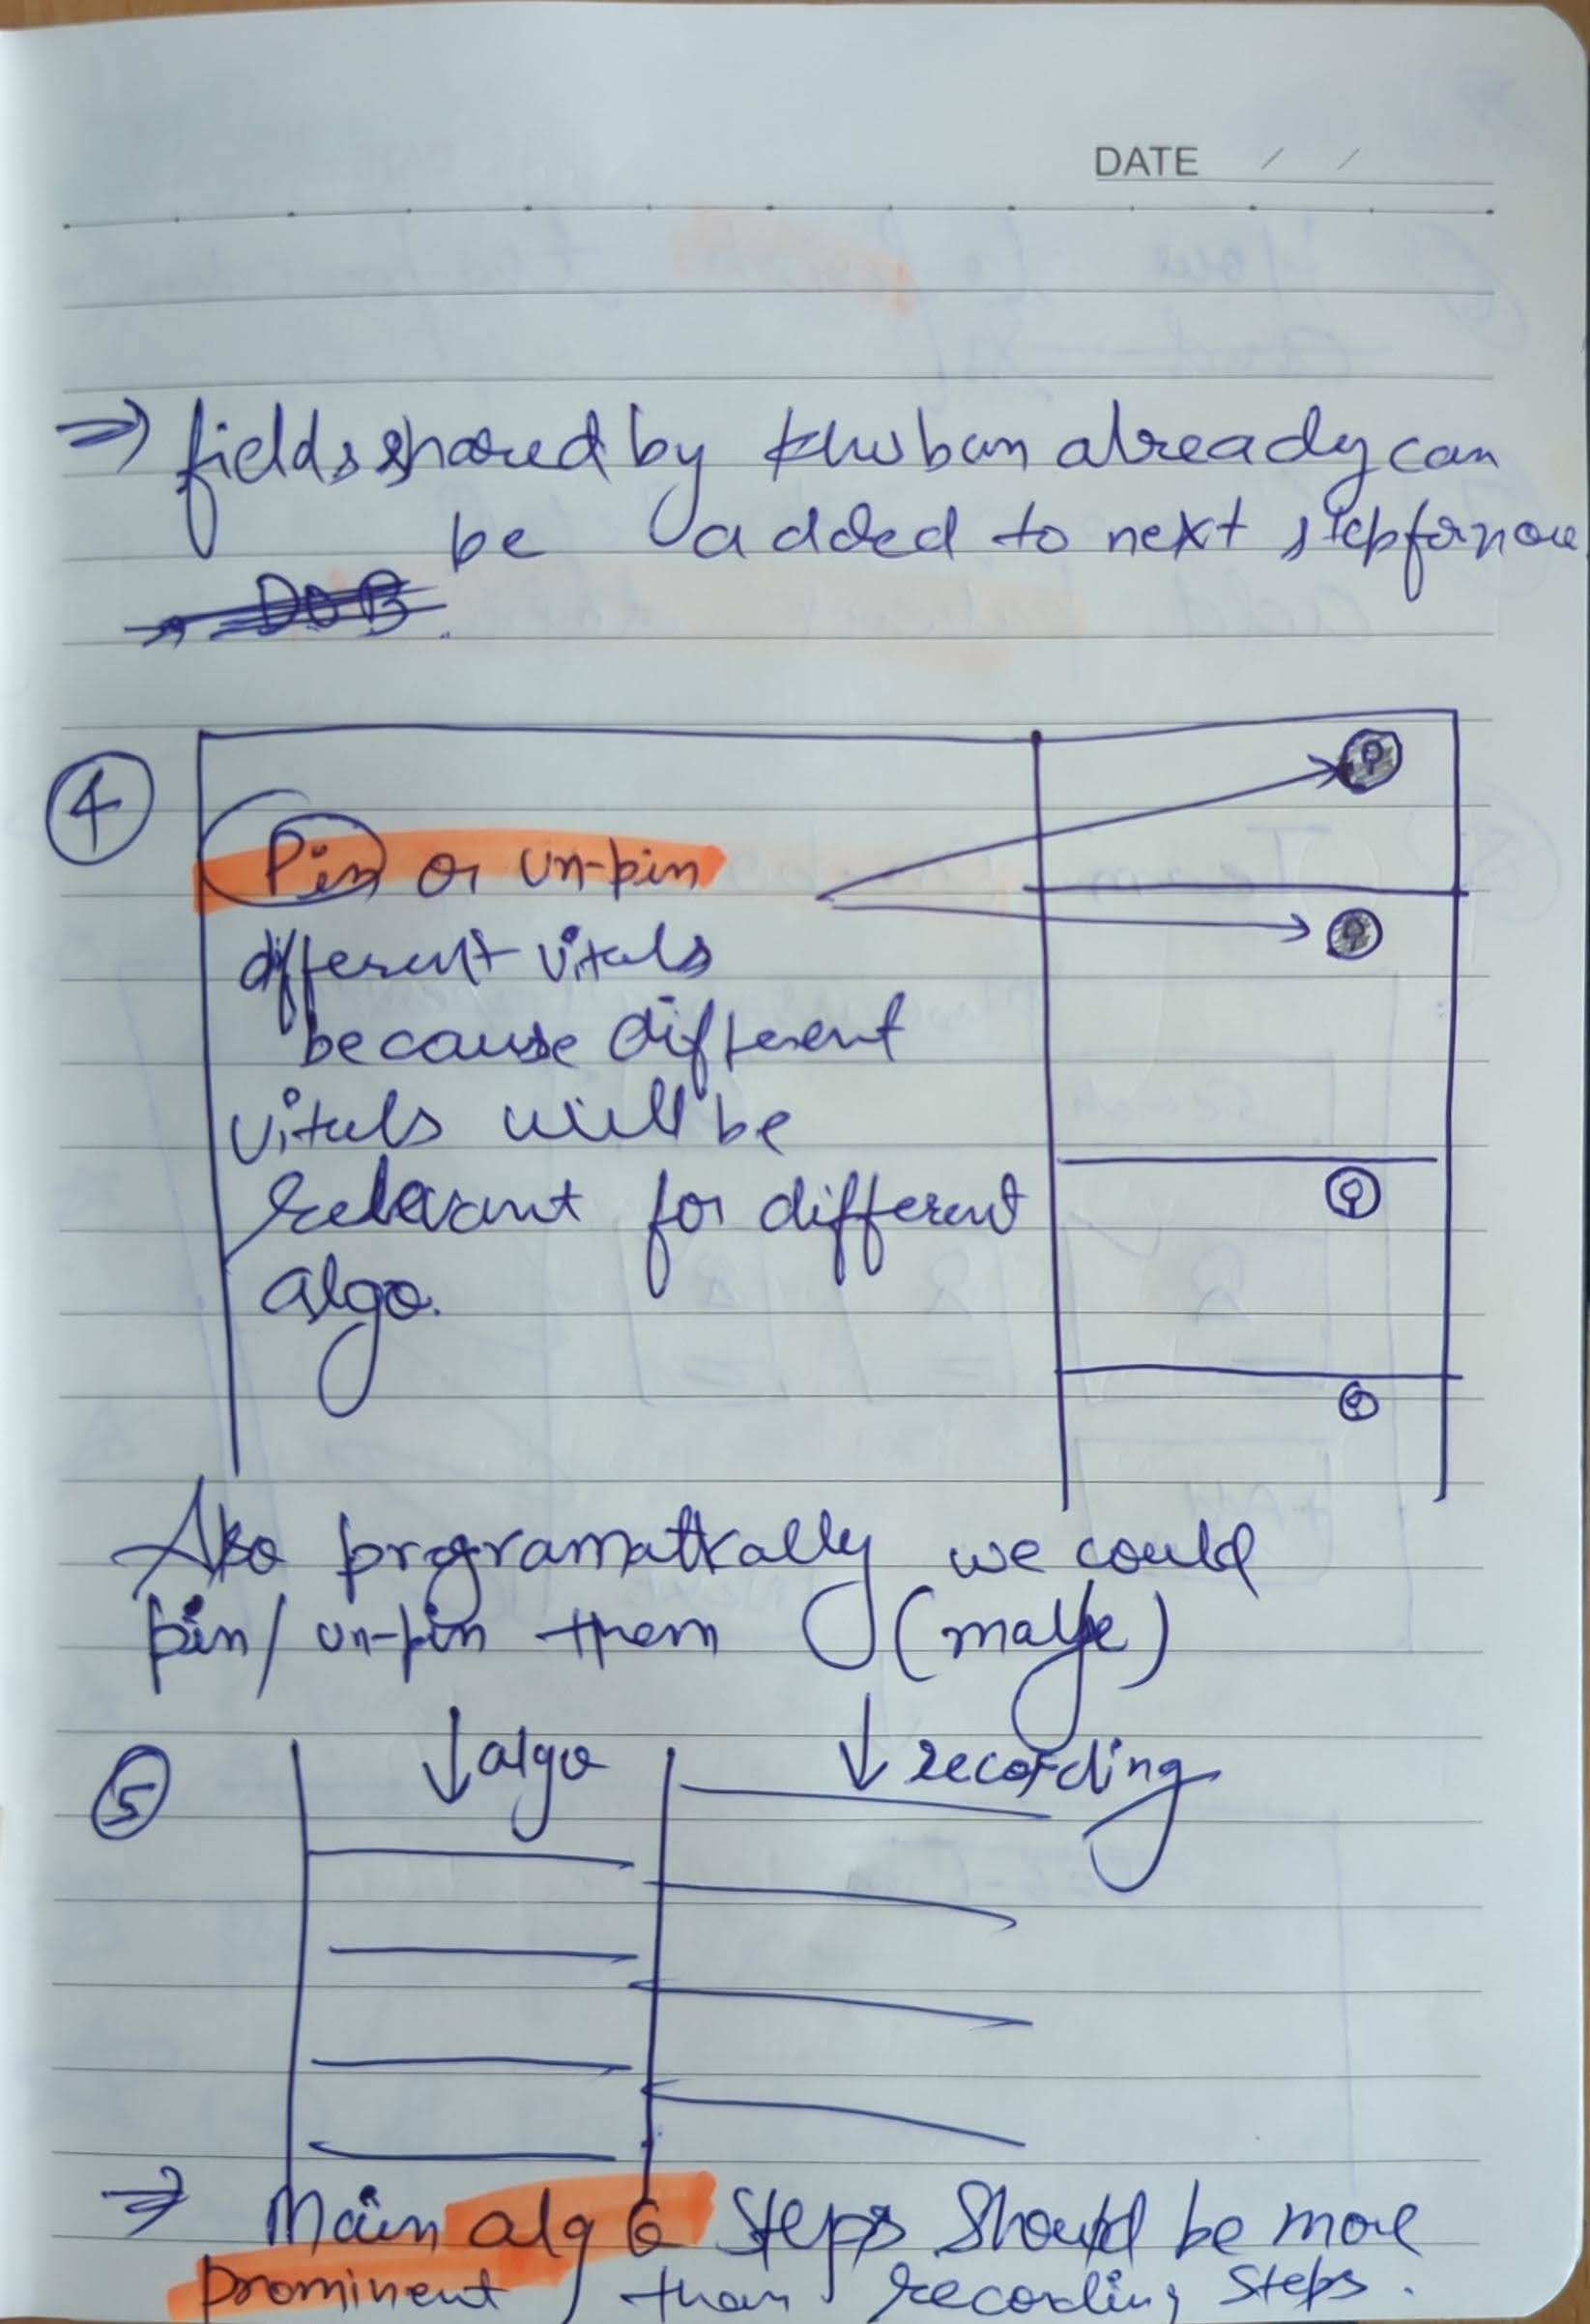 DATE / /
⇒ fields shared by Khuban already can
be added to next step for now
→ DOB
④
Pin or un-pin
different vitals
because different
vitals will be
relevant for different
algo.
Also programatically we could
pin/ un-pin them (maybe)
⑤ ↓ algo ↓ recording
⇒ Main algo steps should be more
prominent than recording steps.